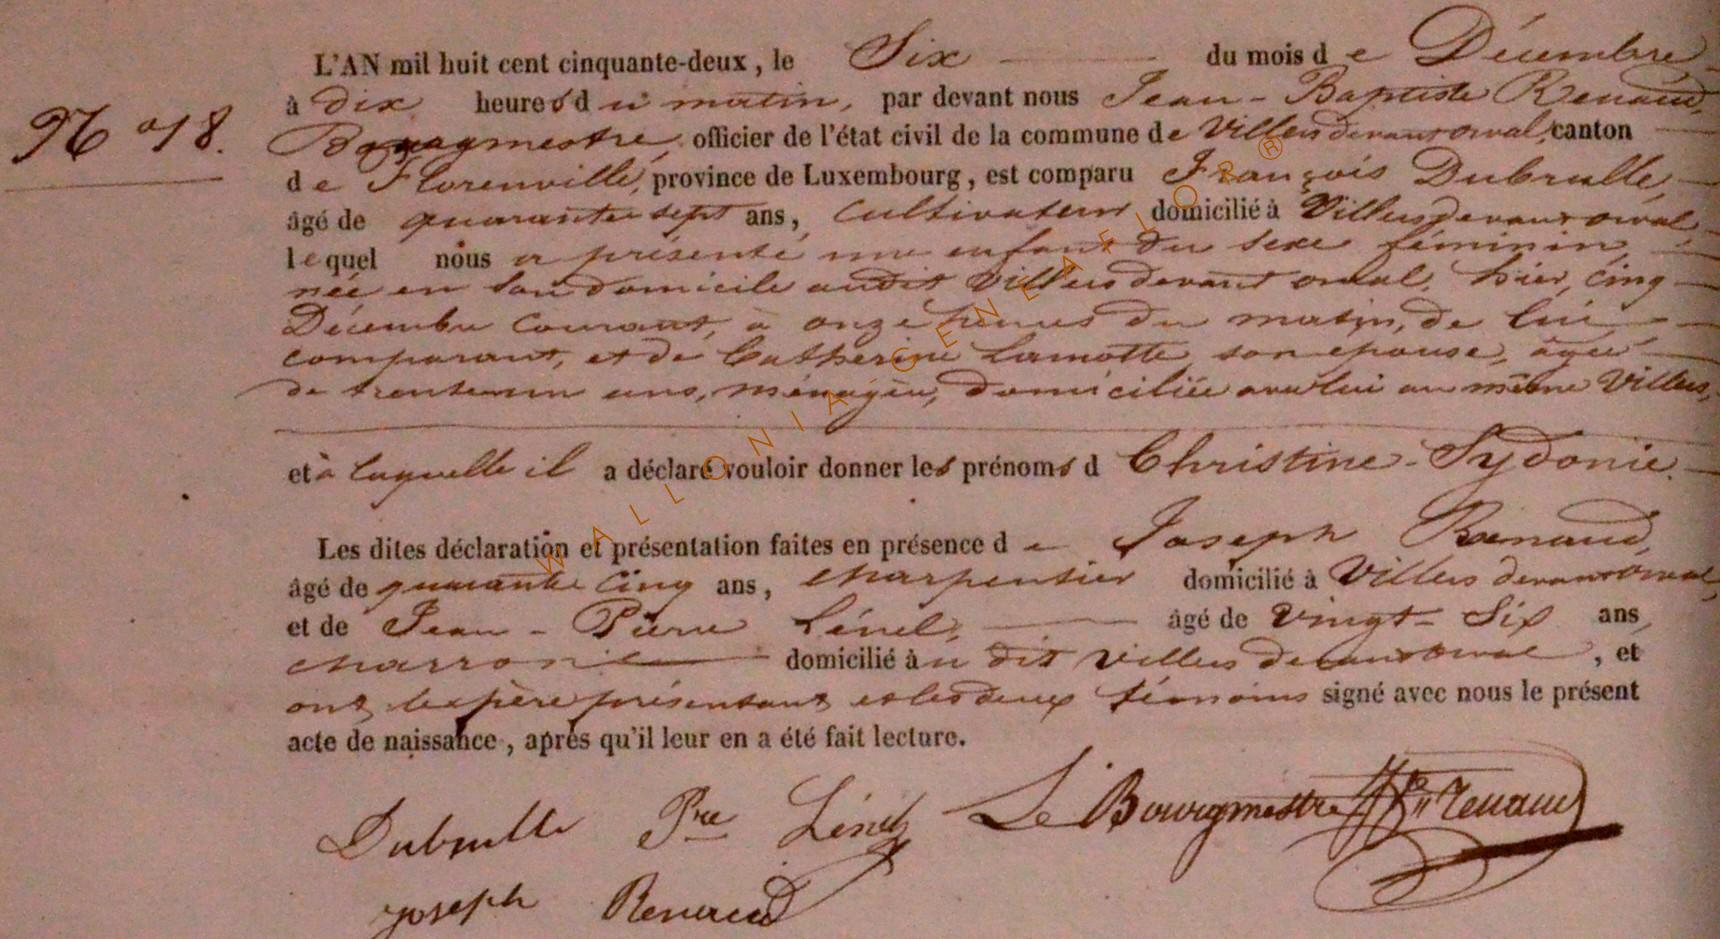 L'AN mil huit cent cinquante-deux, le Six du mois de Décembre
à dix heures du matin, par devant nous Jean-Baptiste Renaud,
N° 18. Bourgmestre, officier de l'état civil de la commune de Villers devant orval, canton
de Florenville, province de Luxembourg, est comparu François Dubrulle,
âgé de quarante sept ans, Cultivateur domicilié à Villers devant orval,
lequel nous a présenté une enfant du sexe féminin,
née en son domicile audit Villers devant orval, hier, cinq
Décembre Courant, à onze heures du matin, de lui
comparant, et de Catherine Lamotte, son épouse, âgée
de trente un ans, ménagère, domiciliée avec lui au même Villers,
et à laquelle il a déclaré vouloir donner les prénoms d Christine-Sydonie.
Les dites déclaration et présentation faites en présence de Joseph Renaud,
âgé de quarante cinq ans, charpentier domicilié à Villers devant orval,
et de Jean-Pierre Lénel, âgé de vingt-six ans,
charron domicilié àu dit Villers devant orval, et
ont, le père présentant et les deux témoins signé avec nous le présent
acte de naissance, après qu'il leur en a été fait lecture.
Dubrulle Pre Lénel Le Bourgmestre Renaud
Joseph Renaud
WALLONIA.GENEAFIOR®